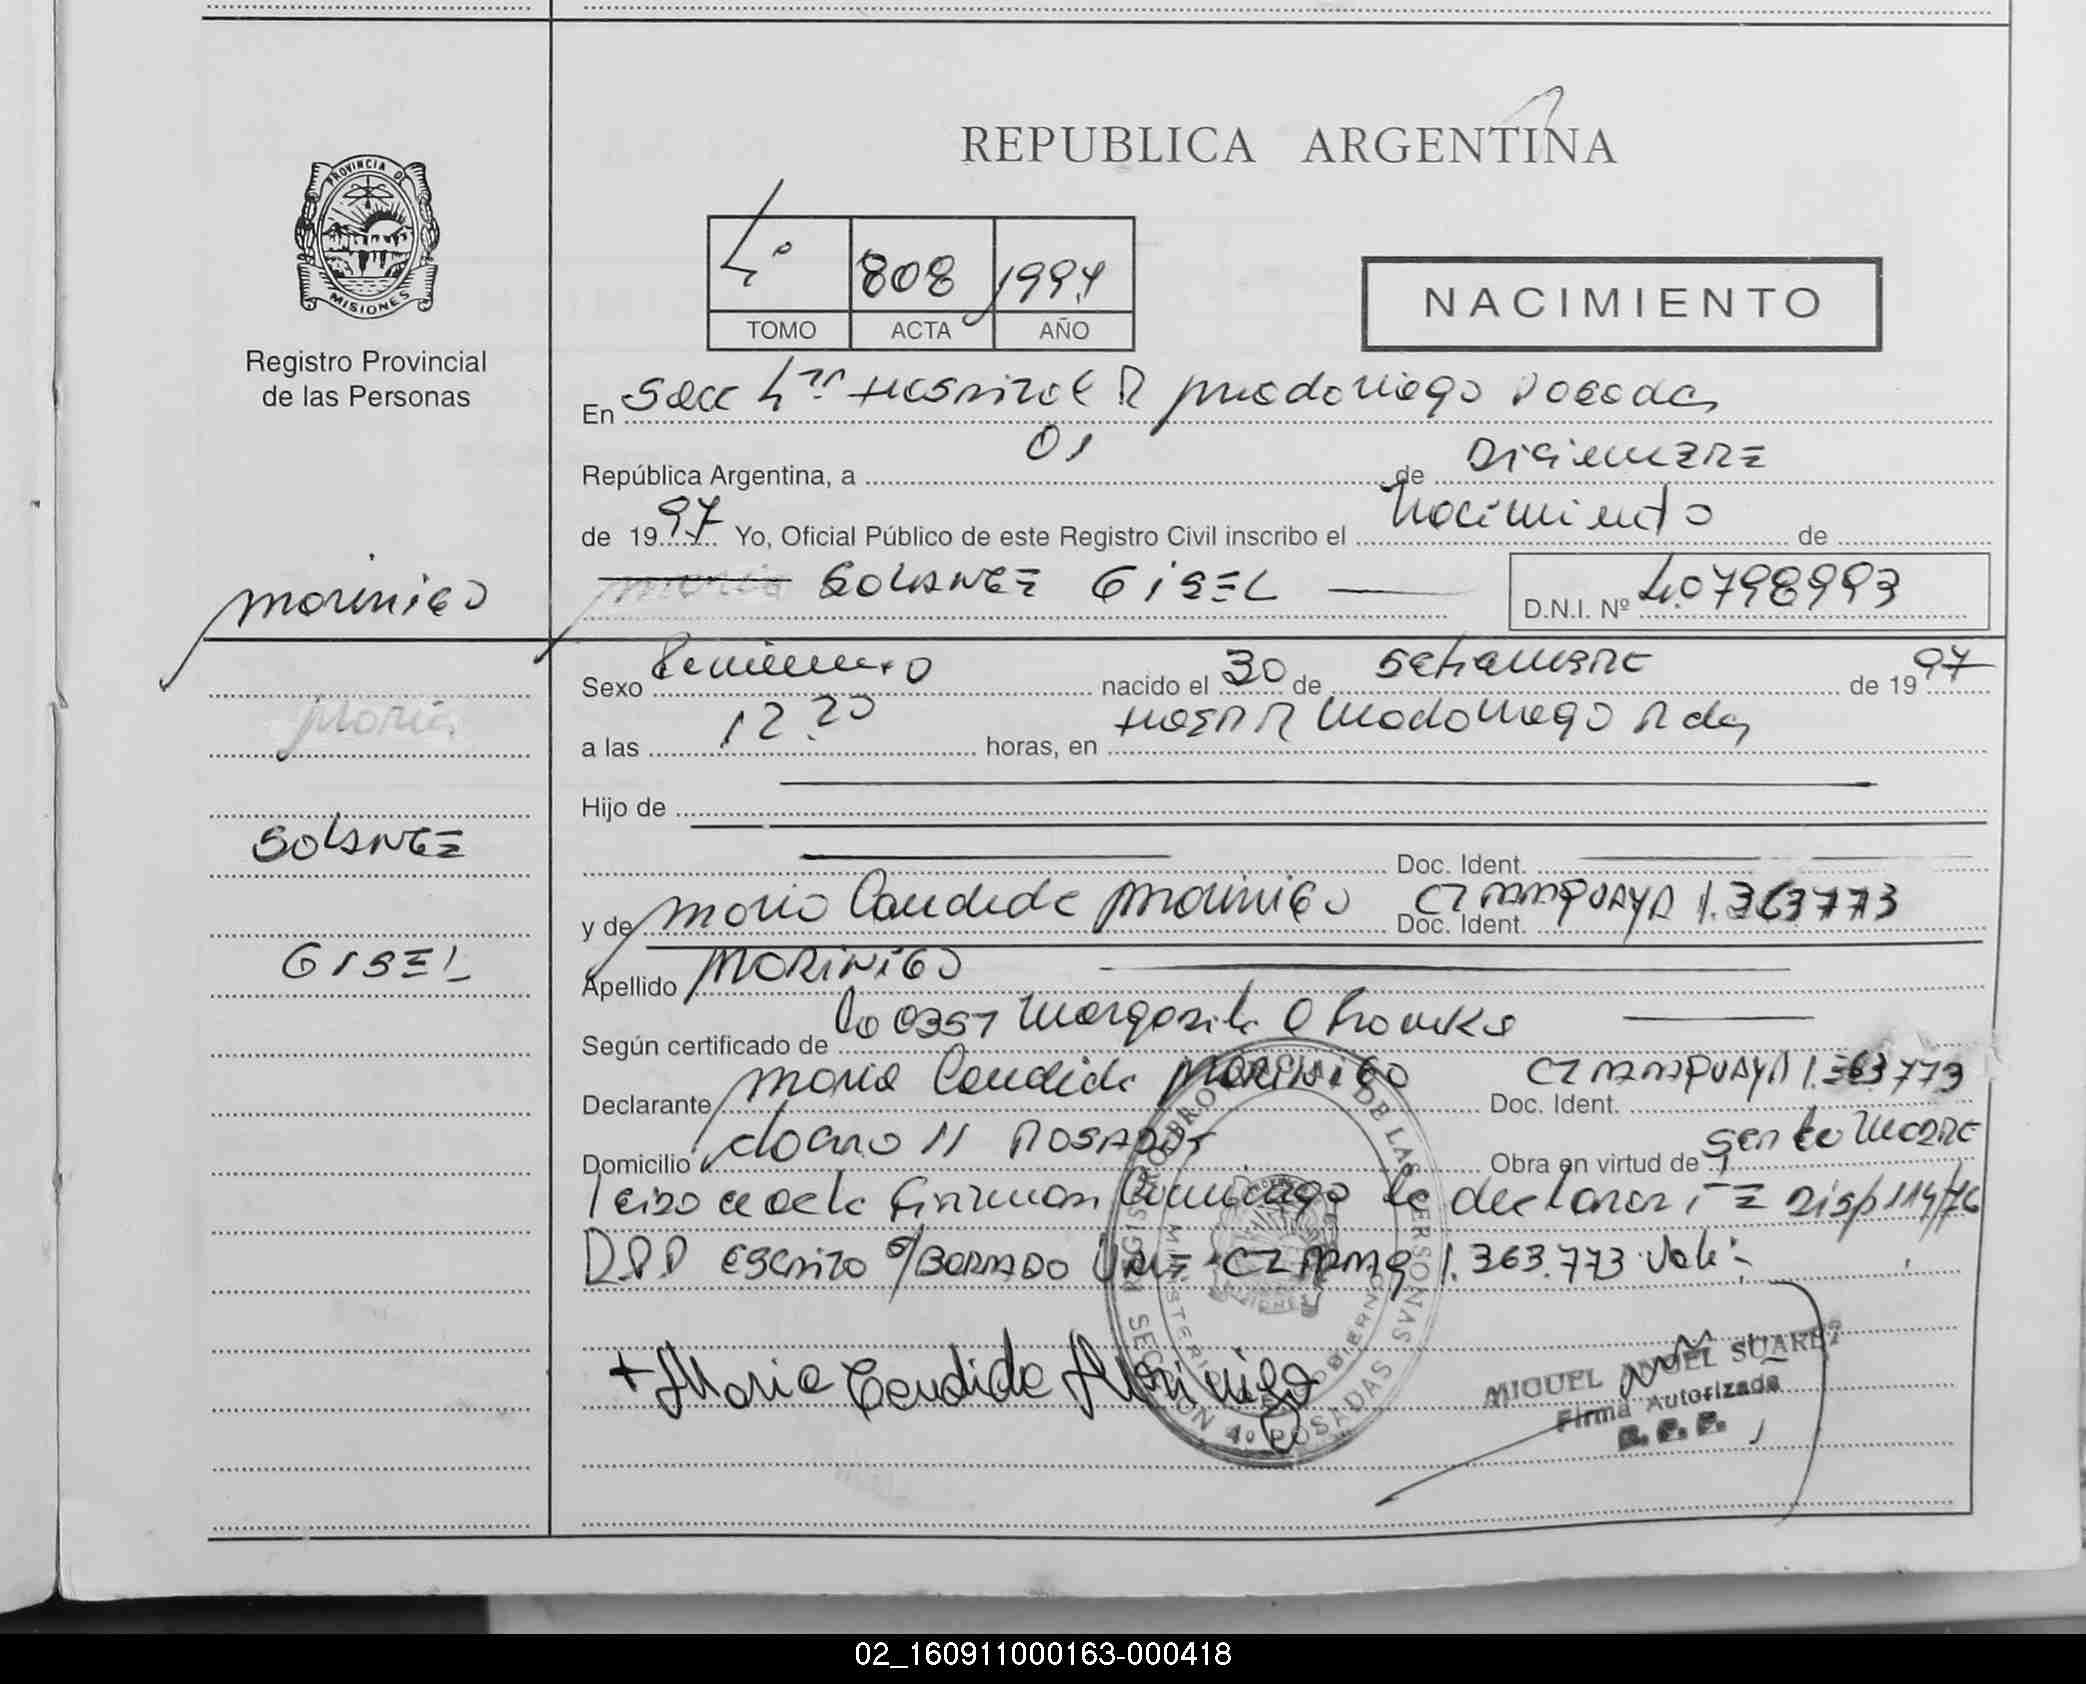 REPUBLICA ARGENTINA
PROVINCIA DE
MISIONES
Registro Provincial
de las Personas
4º 808 1997
TOMO ACTA AÑO
NACIMIENTO
En Secc 4ta Hospital R Madariaga Posadas
República Argentina, a 01 de DICIEMBRE
de 1997 Yo, Oficial Público de este Registro Civil inscribo el Nacimiento de
MORINIGO
SOLANGE GISEL D.N.I. Nº 40798993
Sexo Femenino nacido el 30 de SETIEMBRE de 1997
Maria
a las 12 20 horas, en Hosp R Madariaga Pdas
Hijo de
SOLANGE
Doc. Ident.
y de Maria Candida Morinigo Doc. Ident. CI PARAGUAYA 1.363773
GISEL
Apellido MORINIGO
Según certificado de 0351 Margarita
Declarante Maria Candida MORINIGO Doc. Ident. CI PARAGUAYA 1.363.773
Domicilio 11 POSADAS Obra en virtud de ser la Madre
Leida el acta firman conmigo la declarante DISP 114/76
DPP ESCRITO S/BORRADO VALE CI PARAG 1.363.773 Vale
+ Maria Candida Morinigo
REGISTRO PROVINCIAL DE LAS PERSONAS
MINISTERIO DE GOBIERNO
SECCION 4º POSADAS
MIGUEL ANGEL SUAREZ
Firma Autorizada
R. P. P.
02_160911000163-000418